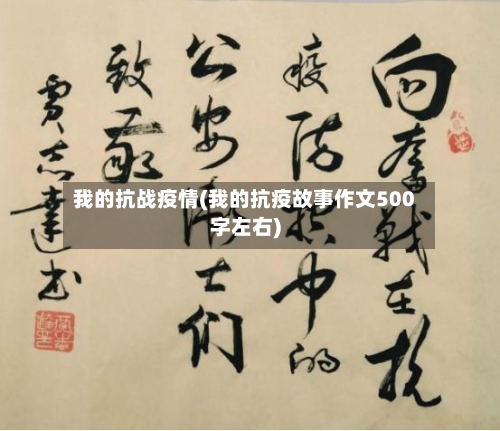 向奋战在抗
疫防控中的
公安卫士们
致敬
贾志达书
我的抗战疫情(我的抗疫故事作文500
字左右)